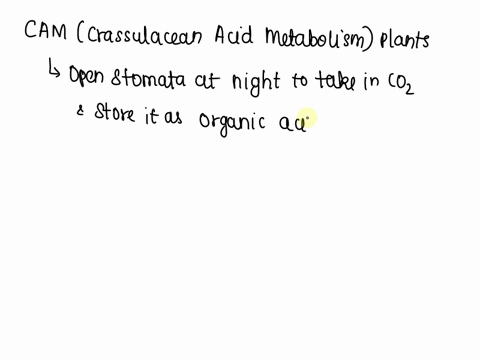 CAM (Crassulacean Acid Metabolism) Plants
↳ Open stomata at night to take in CO₂
& store it as organic aci